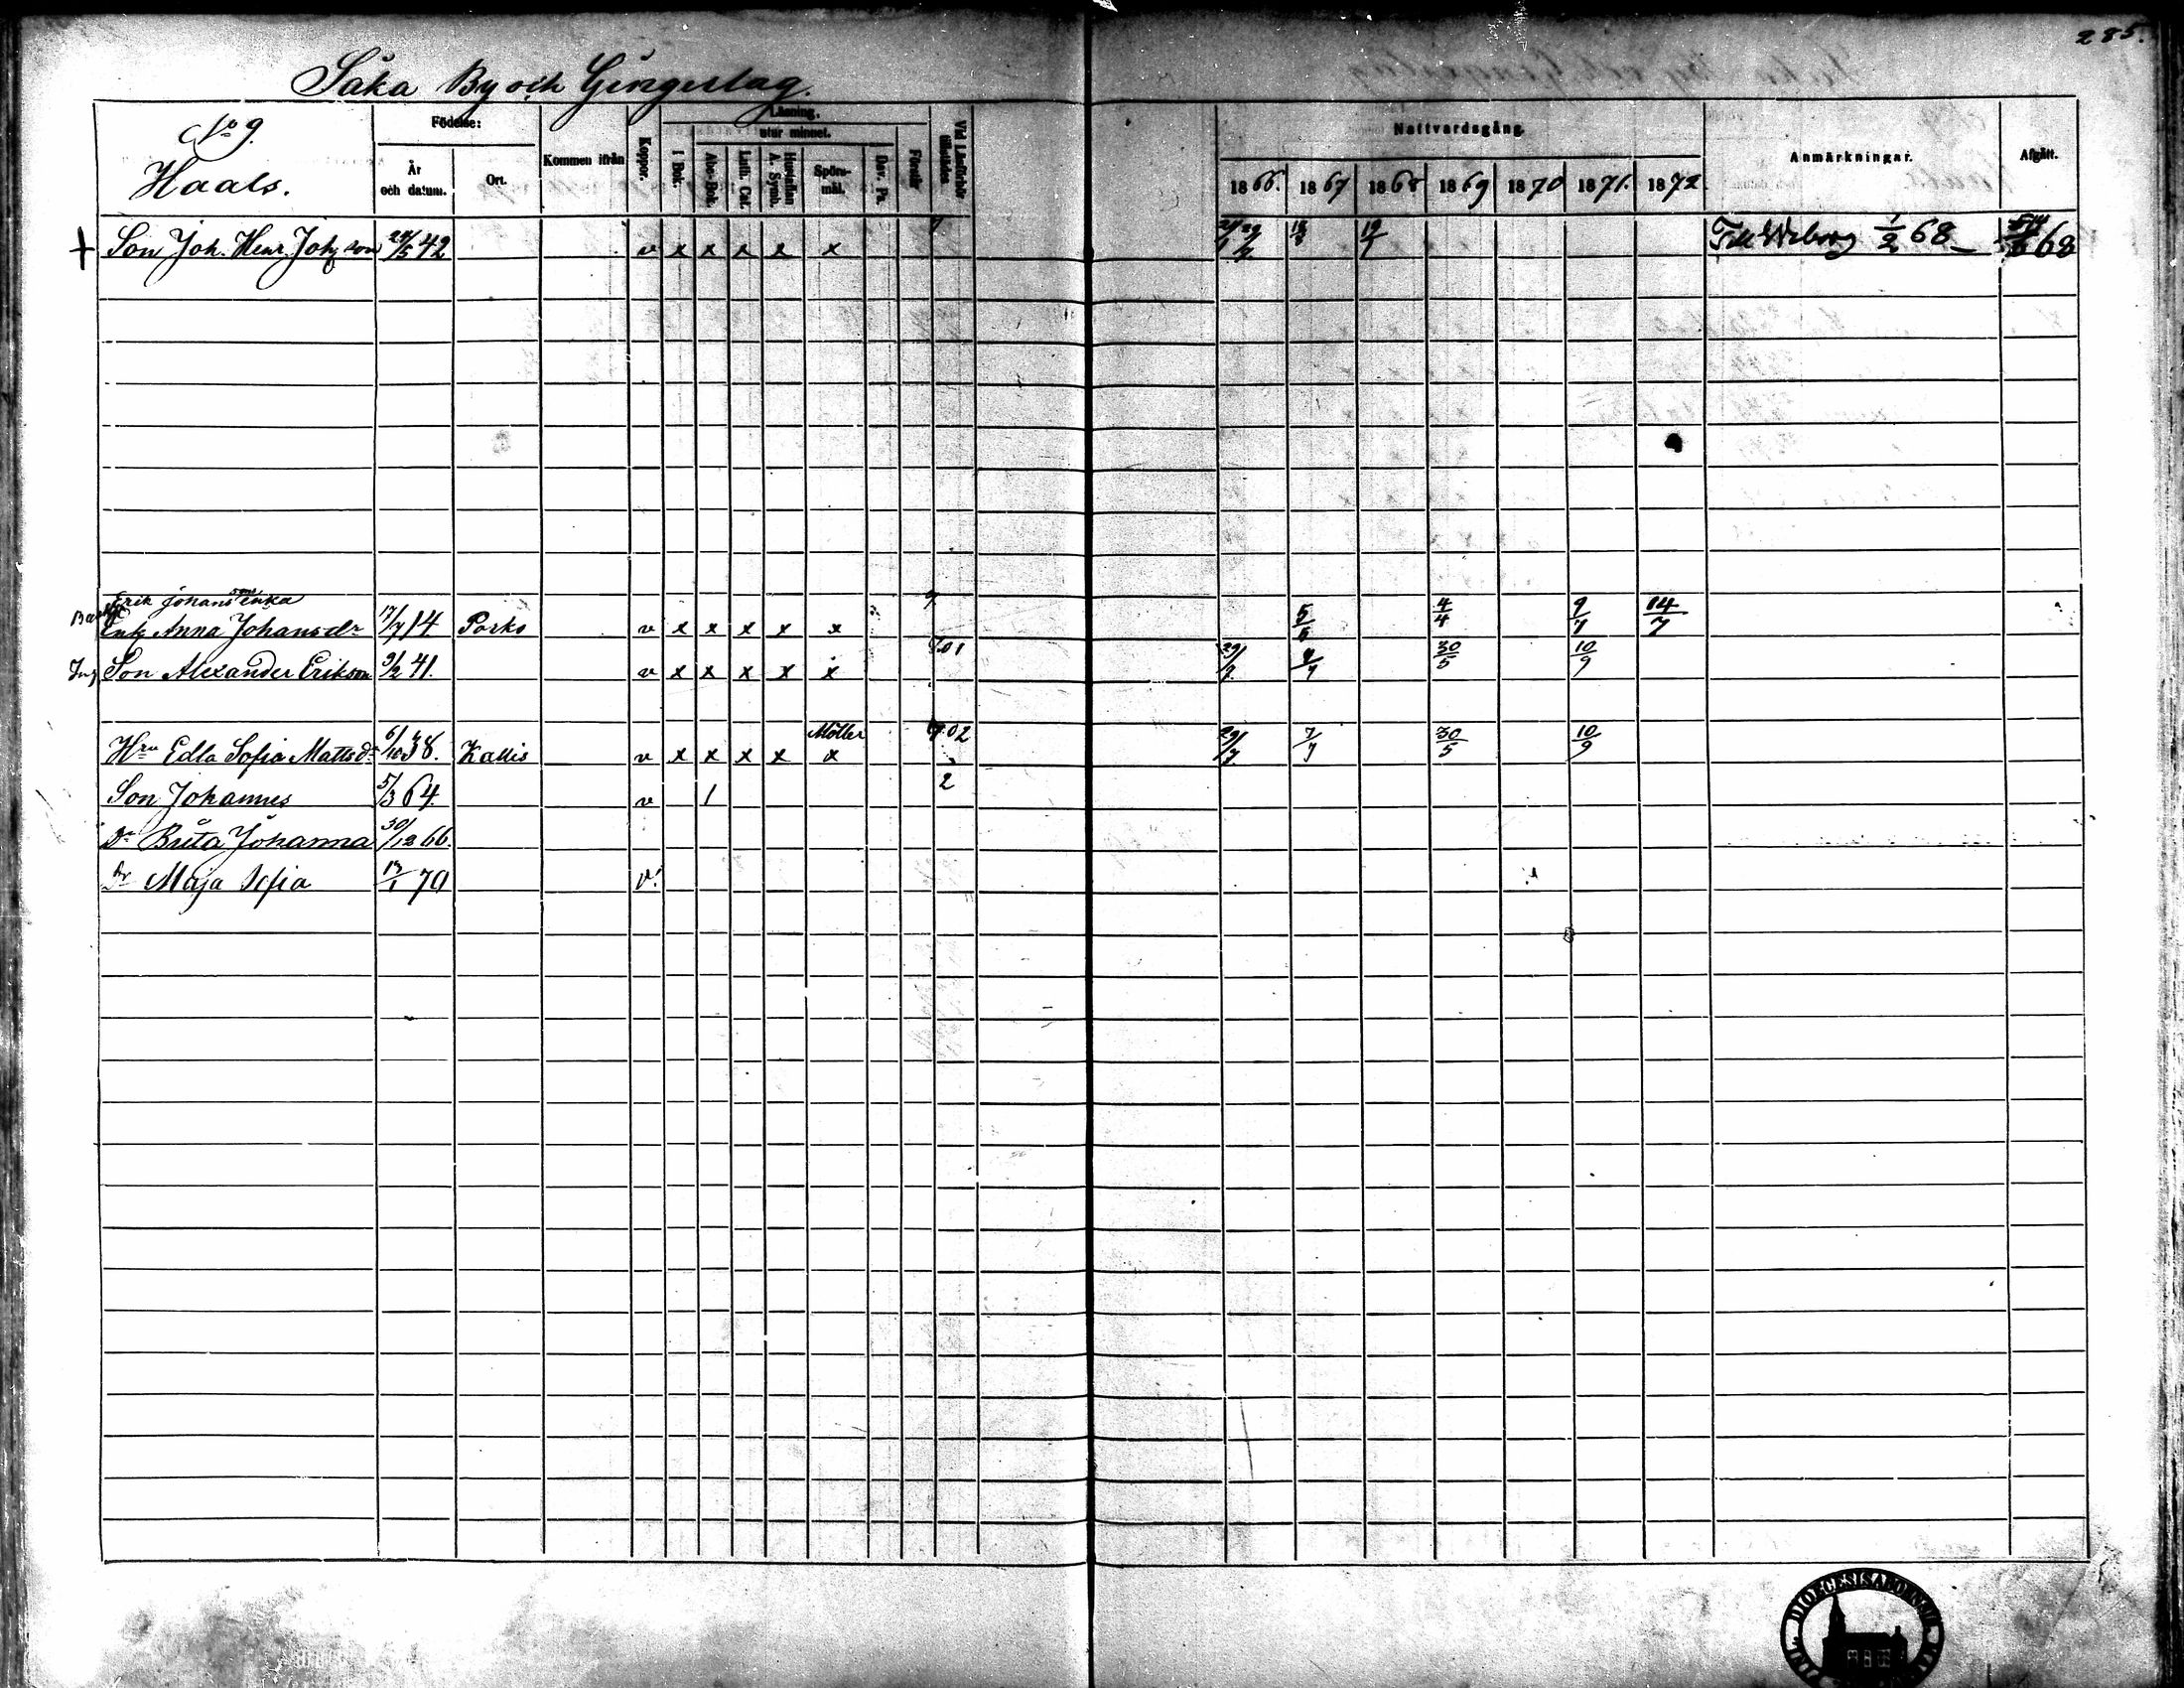 285.
Säka By och Gingerlag.
No 9.
Haals.
Födelse:
År och datum.
Ort.
Kommen ifrån
Koppor.
Läsning.
I Bok.
utur minnet.
Abc-Bok.
Luth. Cat.
Hustaflan A. Symb.
Spörs-mål.
Dav. Ps.
Förstår
Vid Läsförhör
Nattvardsgång.
1866. 1867 1868 1869 1870 1871. 1872
Anmärkningar.
Afgått.
+ Son Joh. Henr. Joh son 24/5 42 v x x x x x 19/7 Till Wiborg 1/2 68 68
Erik Johans son enka
Enk Anna Johansdr 17/7 14 Porko v x x x x x 5/5 4/4 9/7 14/7
Son Alexander Erikson 9/2 41. v x x x x x 29/7 30/5 10/9
Hru Edla Sofia Mattsdr 6/10 38. Kallis v x x x x Möller x 02 29/7 7/7 30/5 10/9
Son Johannes 5/3 64. v 1 2
Dr Brita Johanna 30/12 66.
Dr Maja Sofia 13/1 70 v.
DIOECESIS ABOENSIS